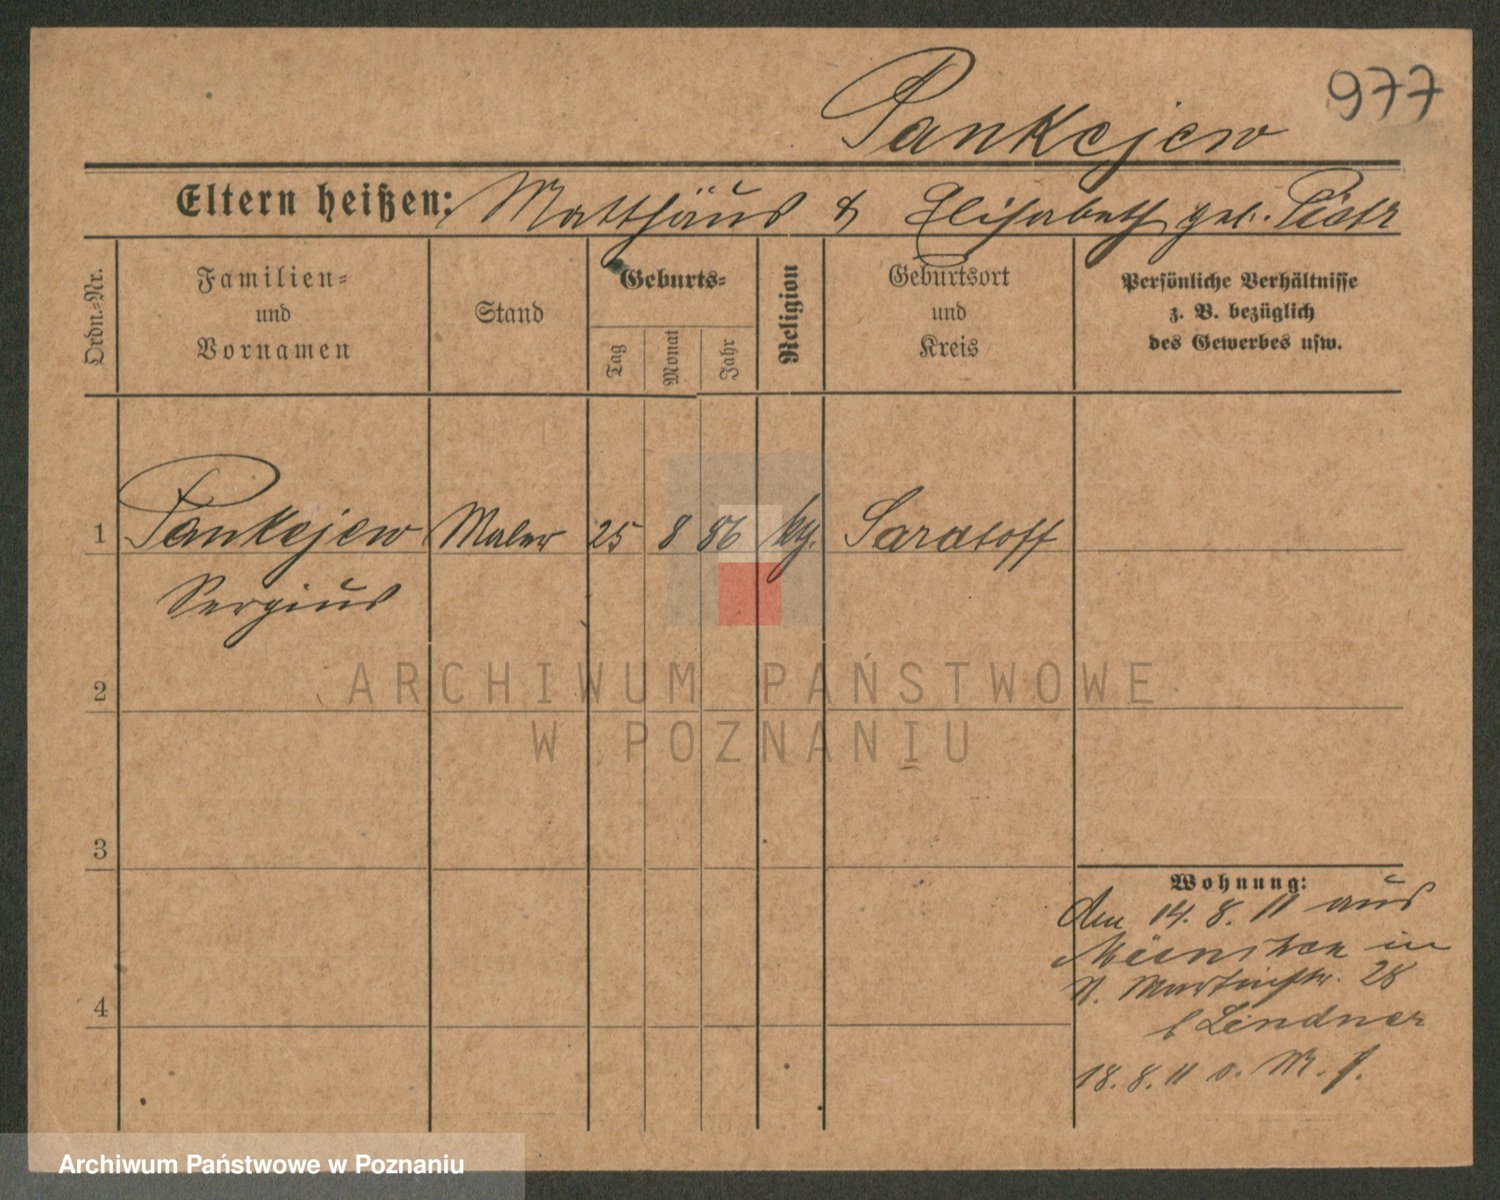 977
Pankejew
Eltern heißen: Matthäus & Elisabeth geb. Piotr
Ordn.-Nr.
Familien-
und
Vornamen
Stand
Geburts-
Tag
Monat
Jahr
Religion
Geburtsort
und
Kreis
Persönliche Verhältnisse
z. B. bezüglich
des Gewerbes usw.
1 Pankejew Maler 25 8 86 kth. Saratoff
Sergius
ARCHIWUM PAŃSTWOWE
W POZNANIU
2
3
4
Wohnung:
Am 14. 8. 11 aus
in
St. Martinstr. 28
b Lindner
18. 8. 11 o.
Archiwum Państwowe w Poznaniu